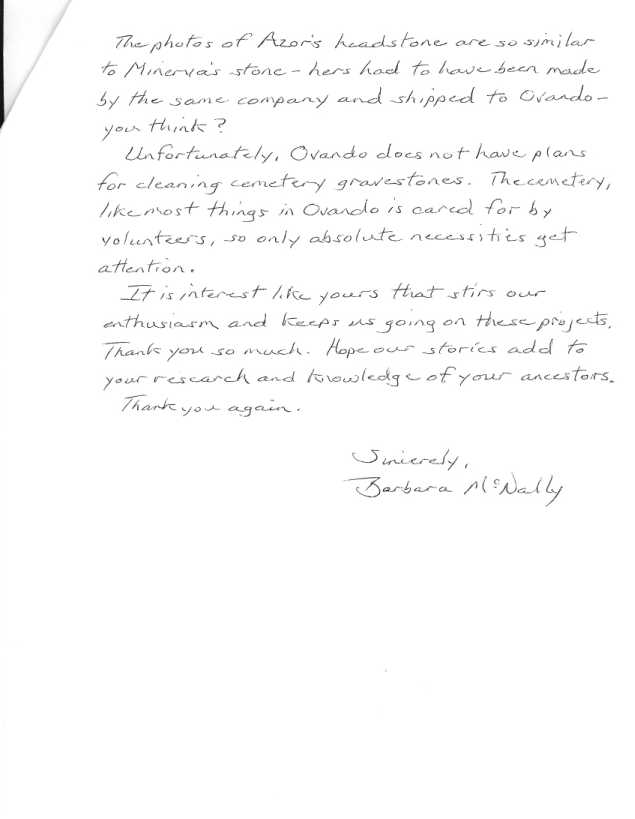 The photos of Azor's headstone are so similar
to Minerva's stone - hers had to have been made
by the same company and shipped to Ovando -
you think?
Unfortunately, Ovando does not have plans
for cleaning cemetery gravestones. The cemetery,
like most things in Ovando is cared for by
volunteers, so only absolute necessities get
attention.
It is interest like yours that stirs our
enthusiasm and keeps us going on these projects.
Thank you so much. Hope our stories add to
your research and knowledge of your ancestors.
Thank you again.
Sincerely,
Barbara McNally